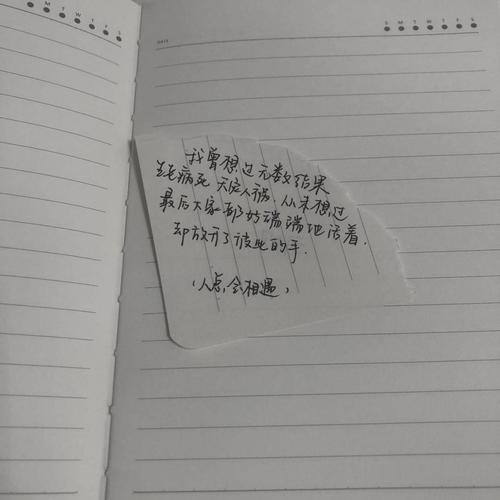 M T W T F S
DATE
S M T W T F S
我曾想过无数结果
生老病死 天灾人祸,从未想过
最后大家都好端端地活着,
却放开了彼此的手.
(人点,会相遇)